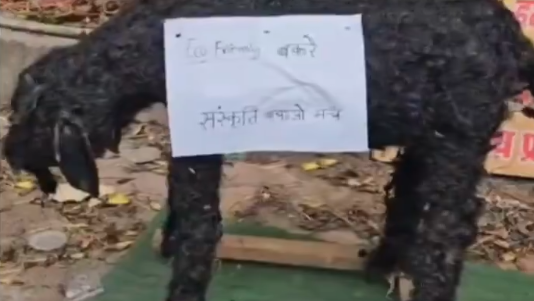 Eco Friendly बकरे
संस्कृति बचाओ मंच